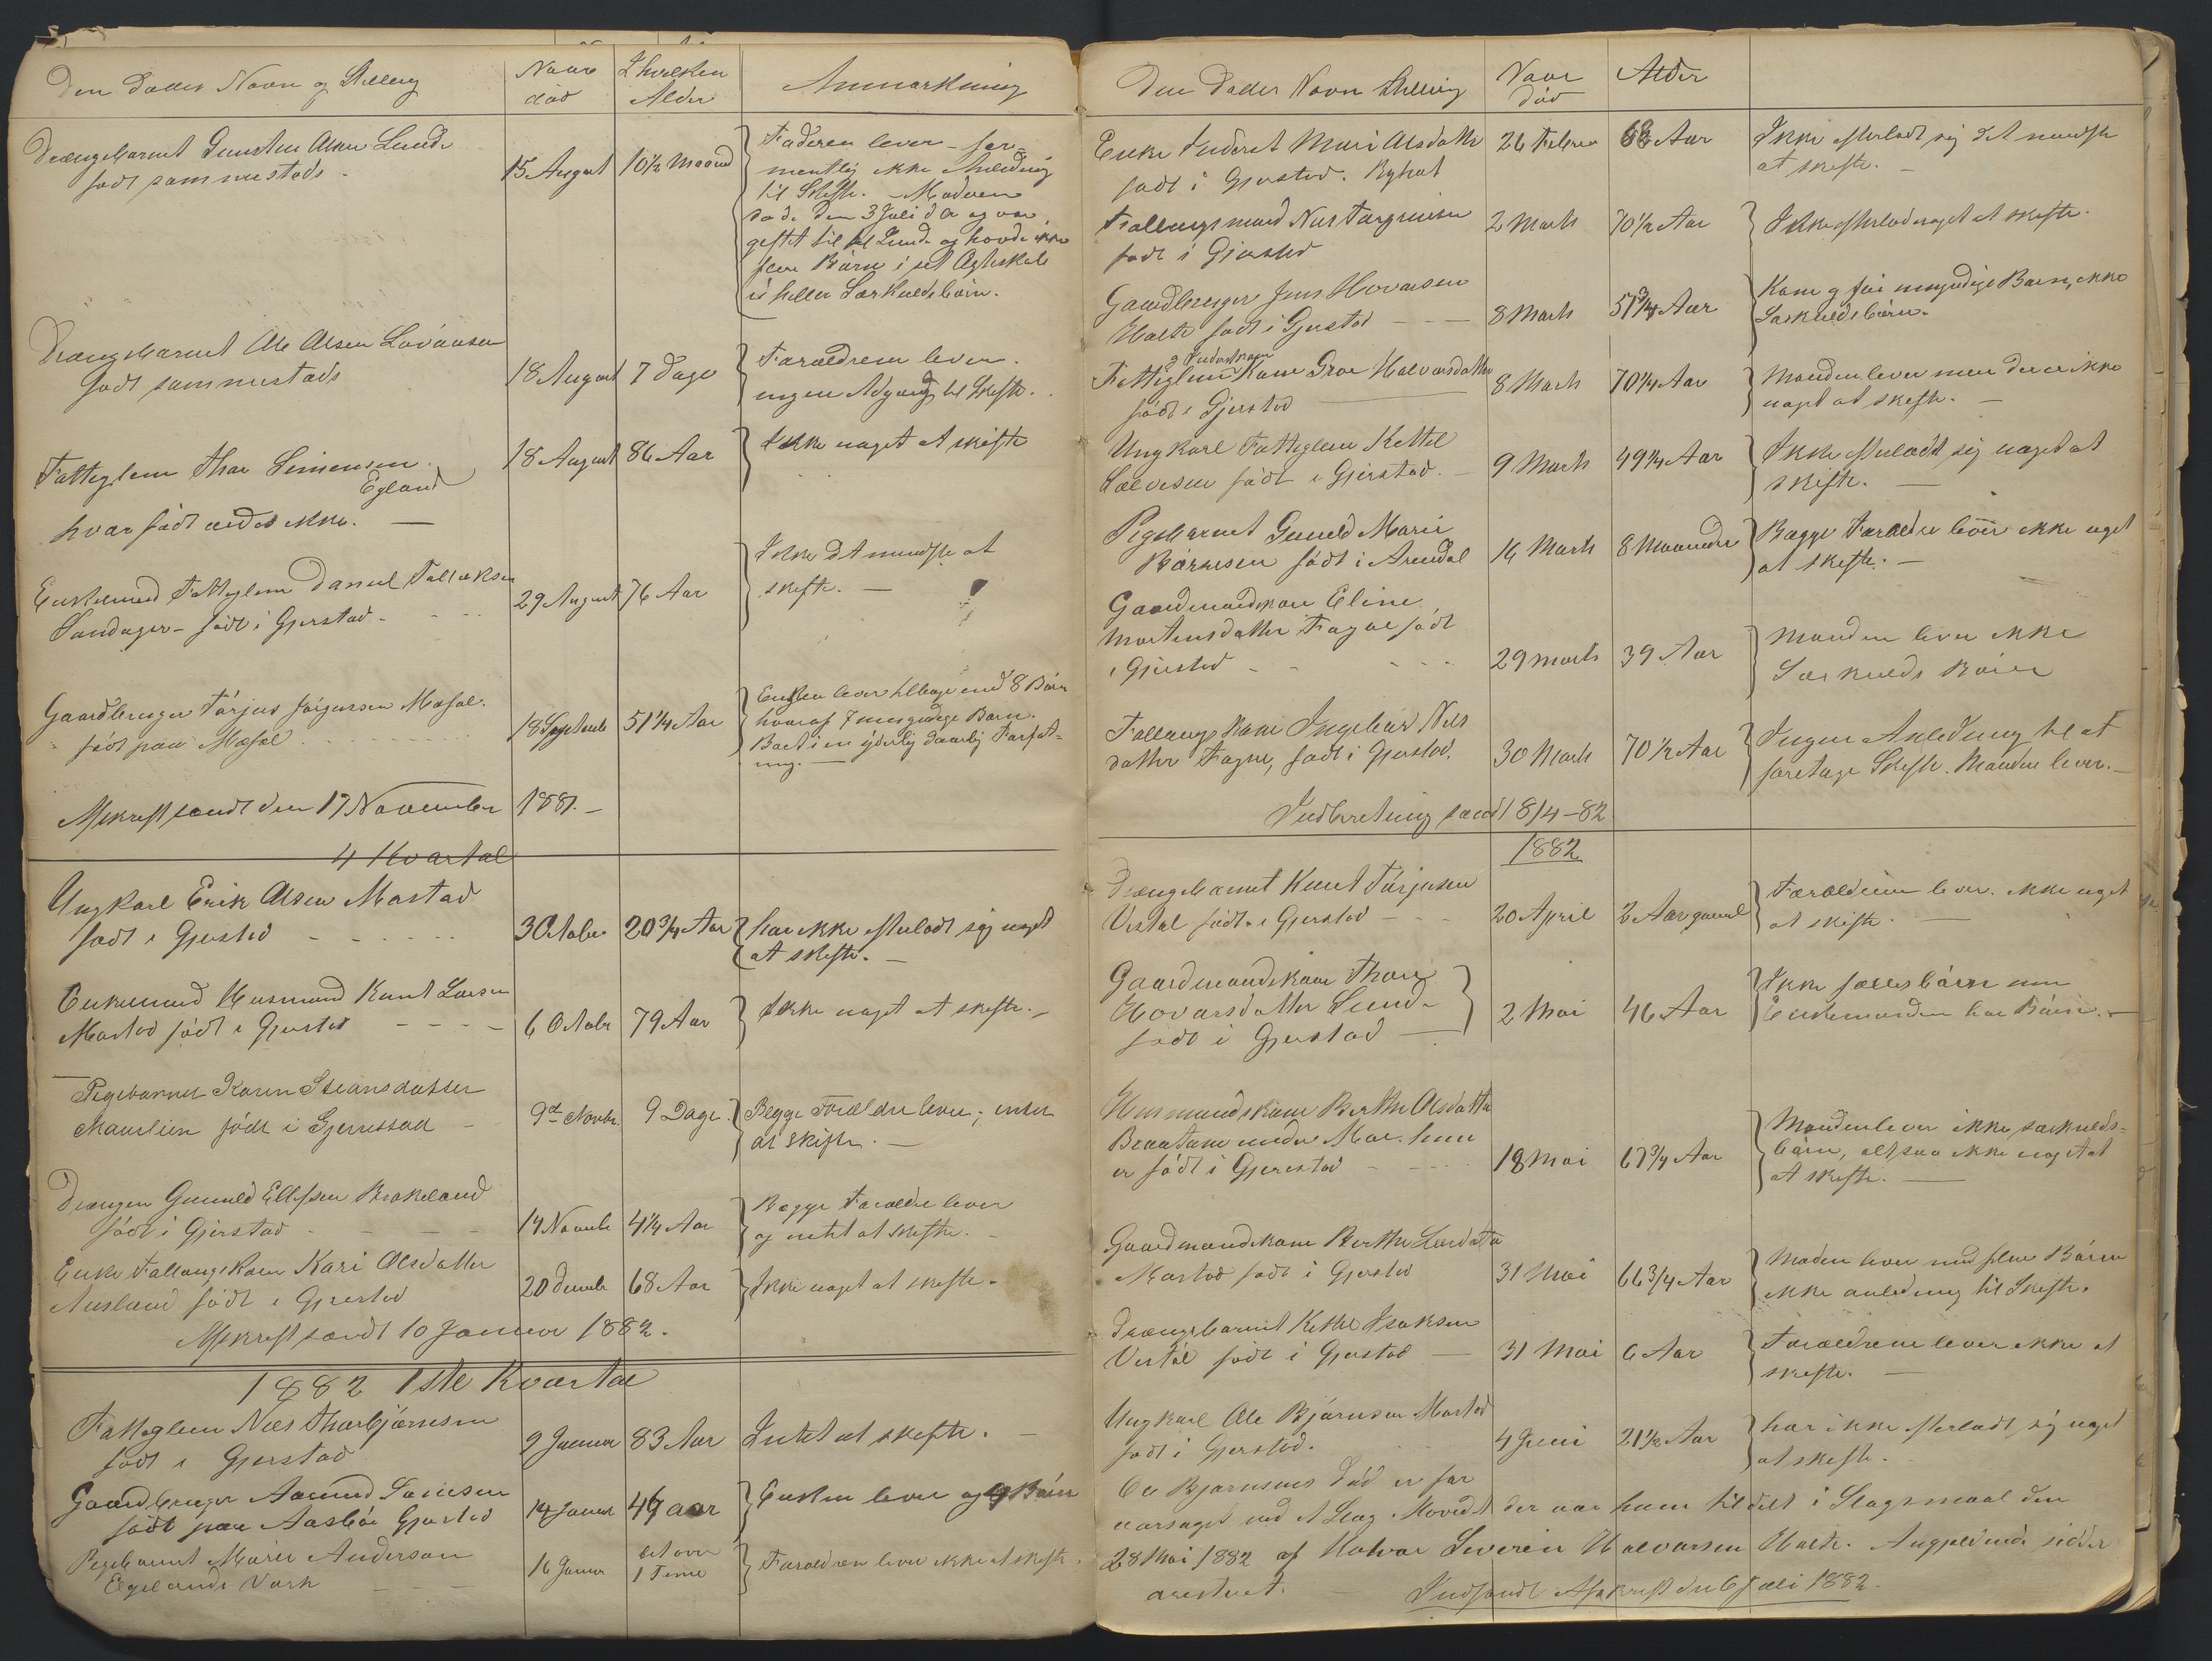 Den Dødes Navn og Stilling
Naar død
I hvilken Alder
Anmærkning
Drængebarnet Gunsten Olsen Lunde
født sammesteds
15 August
10½ Maaned
Faderen lever – for-
mentlig ikke Anledning
til Skifte. – Moderen
døde den 3 Juli d A og var
giftet til Lunde og havde ikke
flere Børn i sit Ægteskab
ei heller Særkuldsbørn.
Drængebarnet Ole Olsen
født sammesteds
18 August
7 Dage
Forældrene lever.
ingen Adgang til Skifte.
Fatteglem Thor Simensen
Egland
hvor født vides ikke. —
18 August
86 Aar
Ikke noget at skifte
Enkemand Fatteglem Daniel Tallaksen
Sandager – født i Gjerstad –
29 August
76 Aar
Ikke det mindste at
skifte. —
Gaardbruger Tárjus Jørgensen Mosfal.
født paa Mosfal
18 Septemb
51¼ Aar
Enken lever tilbage med 8 Børn
hvoraf 7 umyndige Børn.
Boet i en yderlig daarlig Forfat-
ning. —
Afskrift sendt den 17 November 1881. –
4 Kvartal
Ungkarl Erik Olsen Mostad
født i Gjerstad
3 Octobr
20¾ Aar
har ikke efterladt sig noget
at skifte. —
Enkemand Husmand Knut Larsen
Mostad født i Gjerstad
6 Octobr
79 Aar
Ikke noget at skifte. –
Pigebarnet Karen Steansdatter
født i Gjerrestad –
9de Novbr.
9 Dage
Begge Forældre lever; intet
at skifte. —
Drængen Gunuld Ellefsen Brokeland
født i Gjerstad
14 Novemb
4¼ Aar
Begge Forældre lever
og intet at skifte.
Enke Føllaugskone Kari Olsdatter
Ausland født i Gjerstad
20 Decemb
68 Aar
Ikke noget at skifte –
Afskrift sendt 10 Januar 1882.
1882 1ste Kvartal
Fatteglem Niels Thorbjørnsen
født i Gjerstad
9 Januar
83 Aar
Intet at skifte. —
Gaardbruger Aamund
født paa Aasbø Gjerstad
14 Januar
aar
Enken lever og 9 Børn
Pigebarnet Marie Anderson
Egelands Værk
16 Januar
lidt over
1 Time
Forældren lever ikke at skifte.
Den Dødes Navn Stilling
Naar død
Alder
Enke Inderst Mari Olsdatter
født i Gjerstad.
26 Februar
Aar
Ikke efterladt sig det mindste
at skifte. —
Føllaugsmand Nils Torgrimsen
født i Gjerstad
2 Marts
70½ Aar
Ikke efterladt noget at skifte.
Gaardbruger Jens Hovarsen
Holte født i Gjerstad
8 Marts
51¾ Aar
Kone og fire umyndige Børn, ikke
Særkuldsbørn.
og Inderstkone
Fatteglem Kone Groe Halvorsdatter
født i Gjerstad
8 Marts
70¼ Aar
Manden lever men der er ikke
noget at skifte. —
Ungkarl Fatteglem Kettel
Salvesen født i Gjerstad. –
9 Marts
49¼ Aar
Ikke efterladt sig noget at
skifte. —
Pigebarnet Gunild Marie
Børresen født i Arendal
16 Marts
8 Maaneder
Begge Forældre lever ikke noget
at skifte. —
Gaardmandskone Eline
Mortensdatter født
i Gjerstad
29 Marts
39 Aar
Manden lever ikke
Særkulds Børn
Føllaugs Kone Ingebor Nils
datter født i Gjerstad.
30 Marts
70½ Aar
Ingen Anledning til at
foretage Skifte. Manden lever. –
Indberetning sendt 8/4 – 82
1882
Drængebarnet Knut Tárjusen
Vestøl født i Gjerstad
20 April
2 Aar gammel
Forældrene lever. ikke noget
at skifte.
Gaardmandskone Thore
Hovarsdatter Lunde
født i Gjerstad
2 Mai
46 Aar
Ikke fælles børn men
Enkemanden har Børn. –
Husmandskone Berthe Olsdatter
Braatane under Moe. hun
er født i Gjerrestad
18 Mai
67¾ Aar
Manden lever ikke særkulds-
børn, altsaa ikke noget at
at skifte. —
Gaardmandskone Berthe Larsdatter
Mostad født i Gjerstad
31 Mai
66¾ Aar
Manden lever med flere Børn
ikke anledning til Skifte.
Drængebarnet Kettel Isaksen
Vestøl født i Gjerstad
31 Mai
6 Aar
Forældrene lever ikke at
skifte. —
Ungkarl Ole Bjørnsen Mostad
født i Gjerstad.
4 Juni
21½ Aar
har ikke efterladt sig noget
at skifte.
Ole Bjørnsens Død er for
aarsaget ved et Slag i Hovedet der var ham tildelt i Slagsmaal den
28 Mai 1882 af Halvor Severin Halvorsen Holte. Angjeldende sidder
arresteret.
Indsendt Afskrift den 6 Juli 1882.